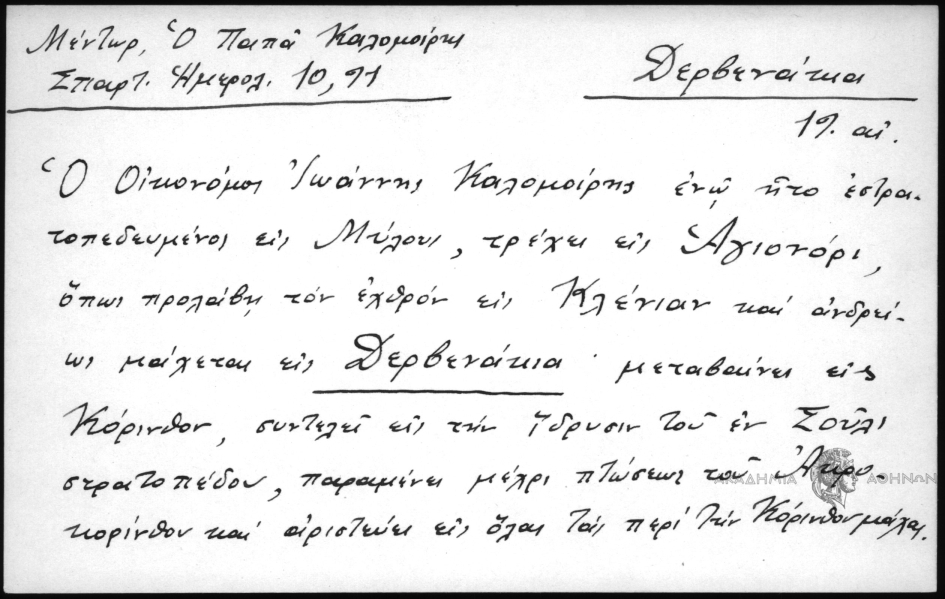 Μέντωρ, Ὁ Παπᾶ Καλομοίρης
Σπαρτ. Ἡμερολ. 10, 91
Δερβενάκια
19. αἰ.
Ὁ Οἰκονόμος Ἰωάννης Καλομοίρης ἐνῷ ἦτο ἐστρα-
τοπεδευμένος εἰς Μύλους, τρέχει εἰς Ἁγιονόρι,
ὅπως προλάβῃ τόν ἐχθρόν εἰς Κλένιαν καί ἀνδρεί-
ως μάχεται εἰς Δερβενάκια· μεταβαίνει εἰς
Κόρινθον, συντελεῖ εἰς τήν ἵδρυσιν τοῦ ἐν Σούλι
στρατοπέδου, παραμένει μέχρι πτώσεως τοῦ Ἀκρο-
κορίνθου καί ἀριστεύει εἰς ὅλας τάς περί τήν Κόρινθον μάχας.
ΑΚΑΔΗΜΙΑ ΑΘΗΝΩΝ